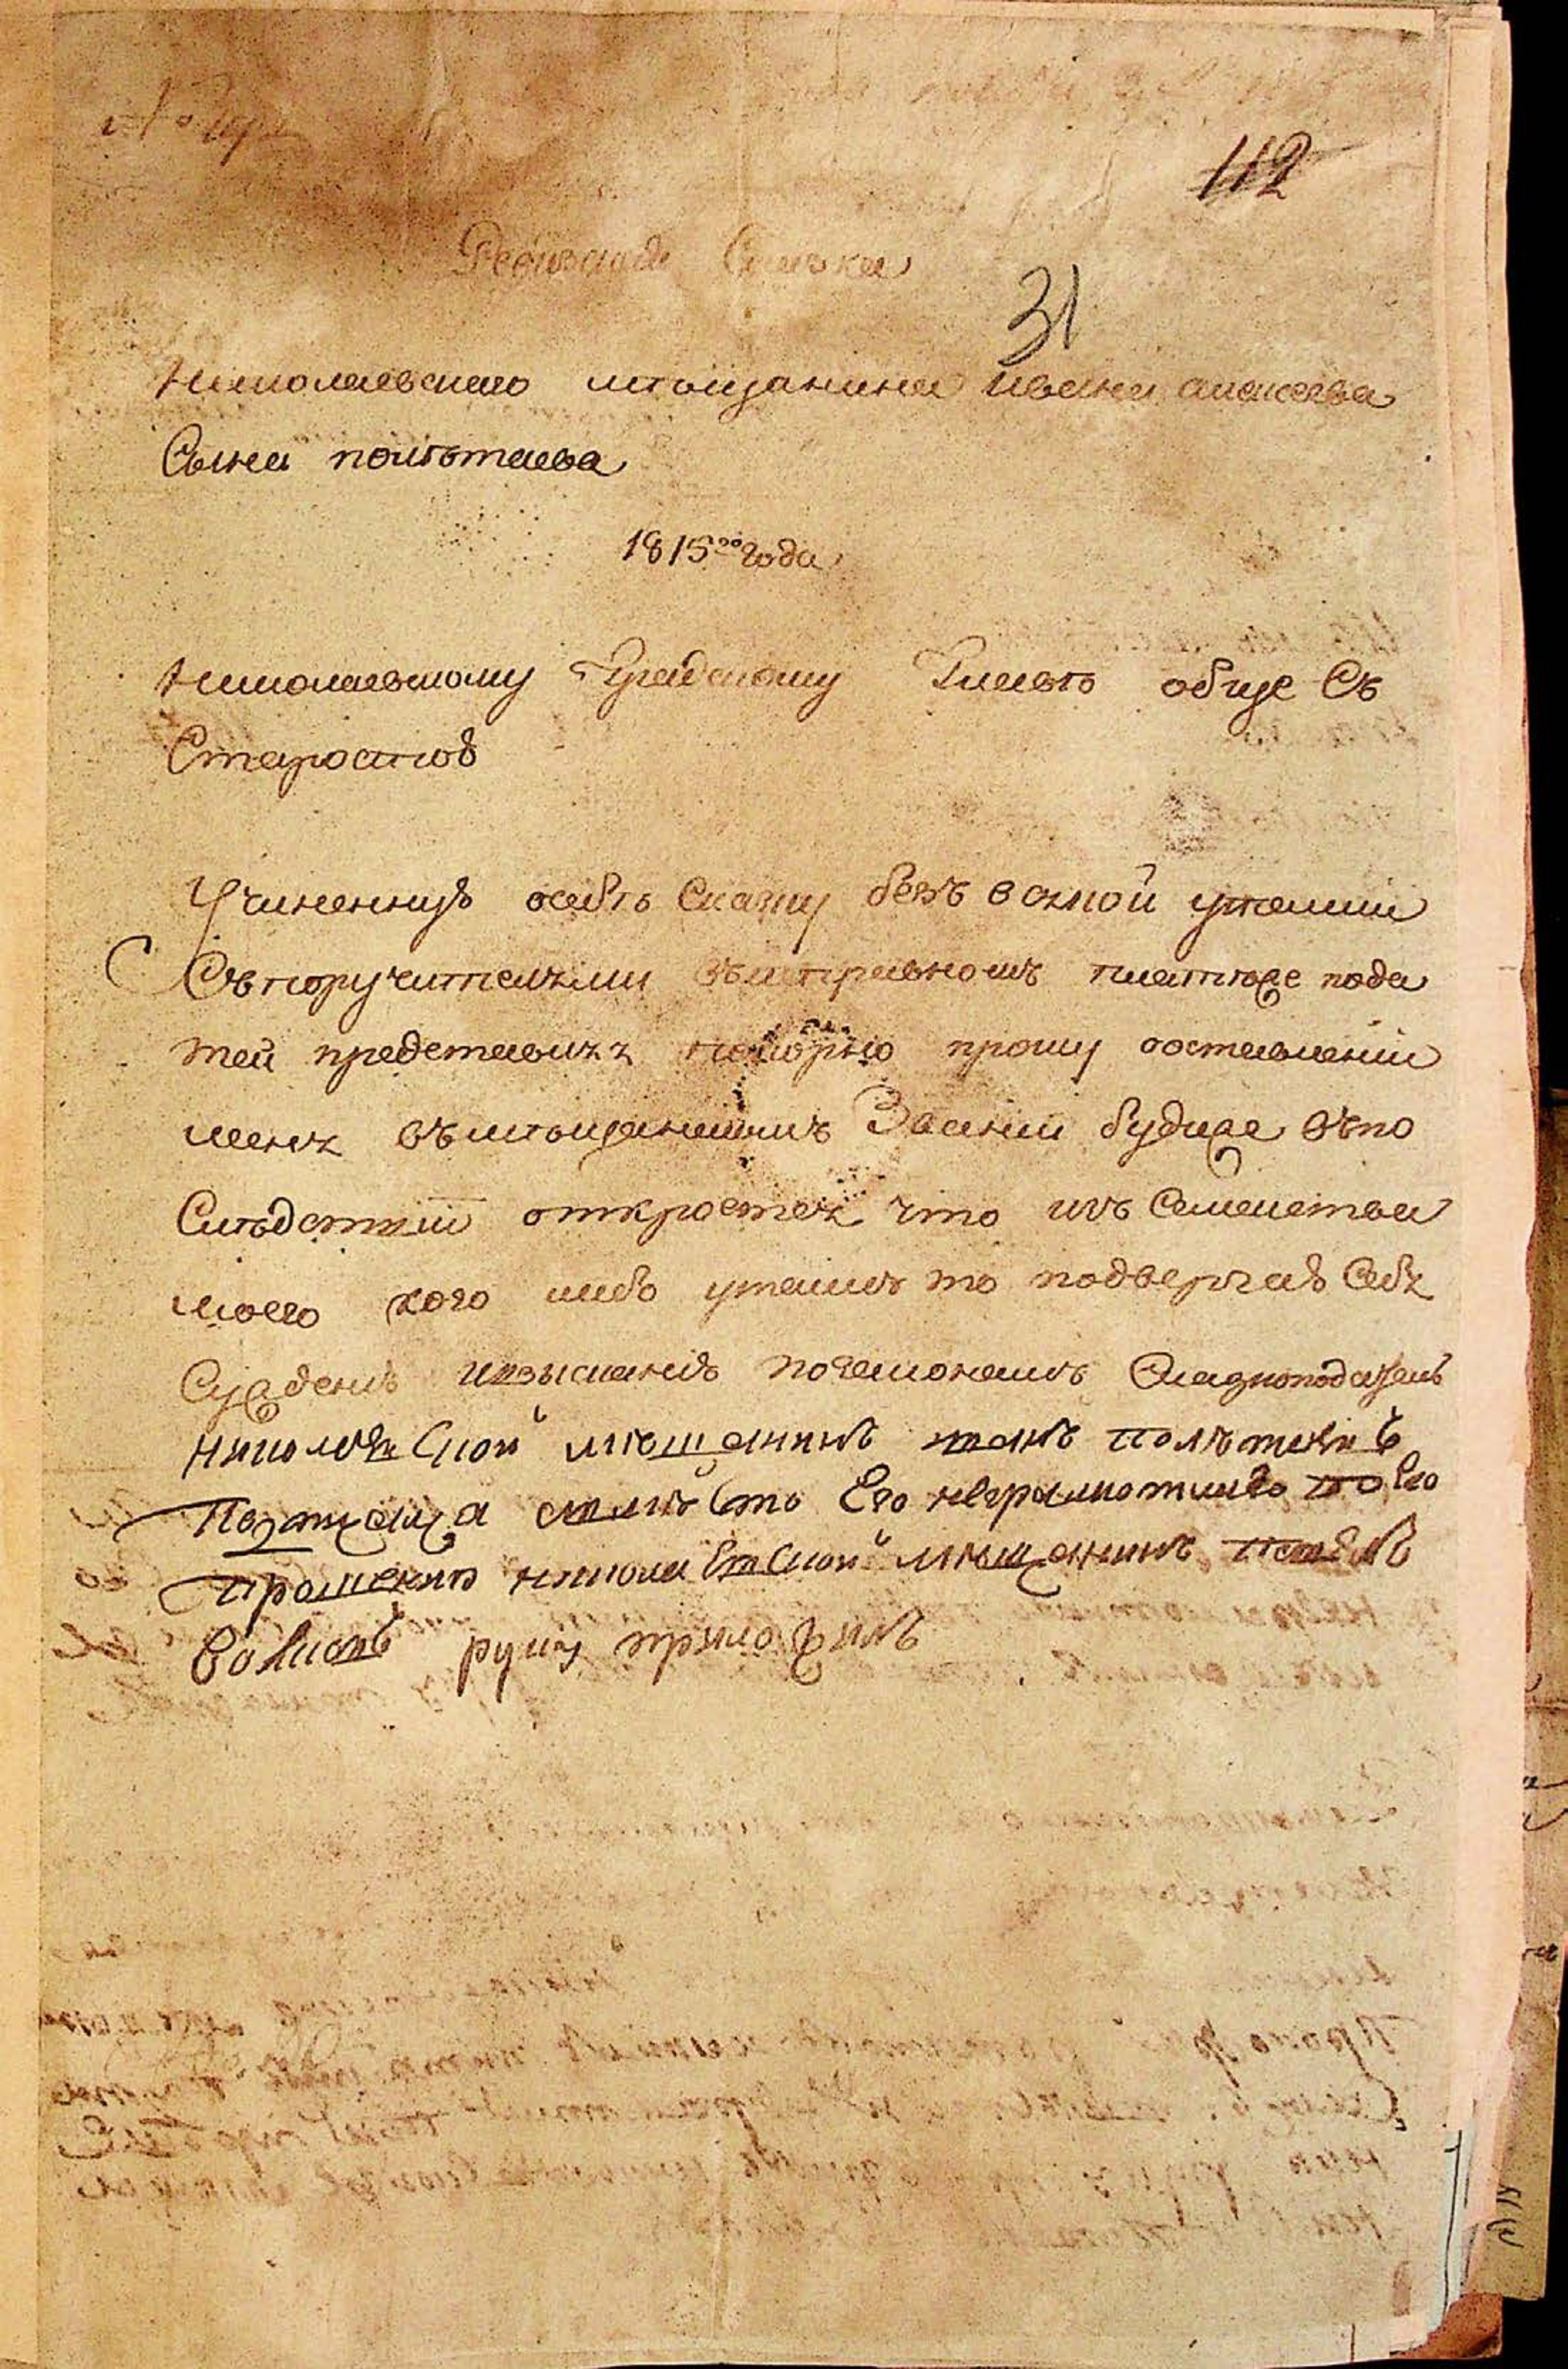 112
Ревизская Скаска
31
Николаевскаго мѣщанина ивана алексеева
Сына полѣтаева
1815го года
Николаевскому Градскому Главѣ обще Съ
Старостою
Учиненную осебѣ Скаску безъ всякой утайки
Съпоручителями въисправномъ платеже пода
тей представляя покорно прошу ооставлении
меня въмѣщанскомъ Звании будеже въпо
Следствии откроется что изъ Семейства
моего кого либо утаилъ то подвергаю Себя
Суждению ивзысканию позаконамъ
николаевской мѣщанинъ иванъ полѣтаевъ
А вместо Его неграмотнаго по Его
прошению николаевской мѣщанинъ
Волковъ руку приложилъ